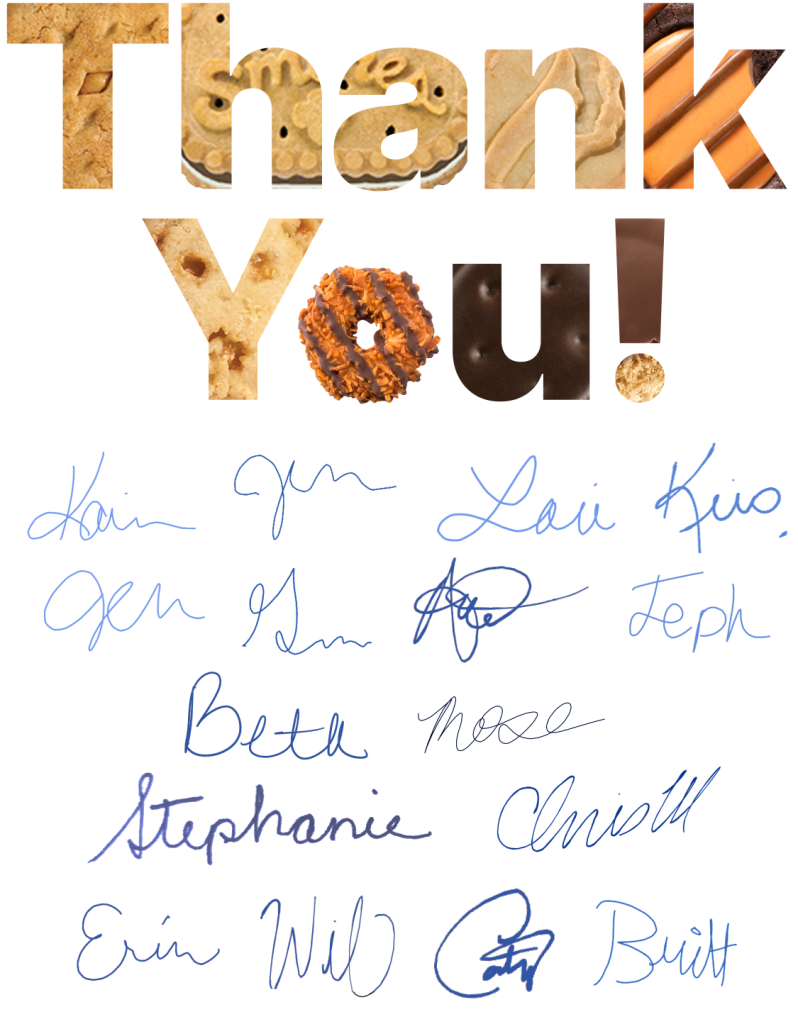 Thank
You!
Jen Lori Kris.
Jen Steph
Beth Rose
Stephanie Chris M
Erin Wil Caty Britt